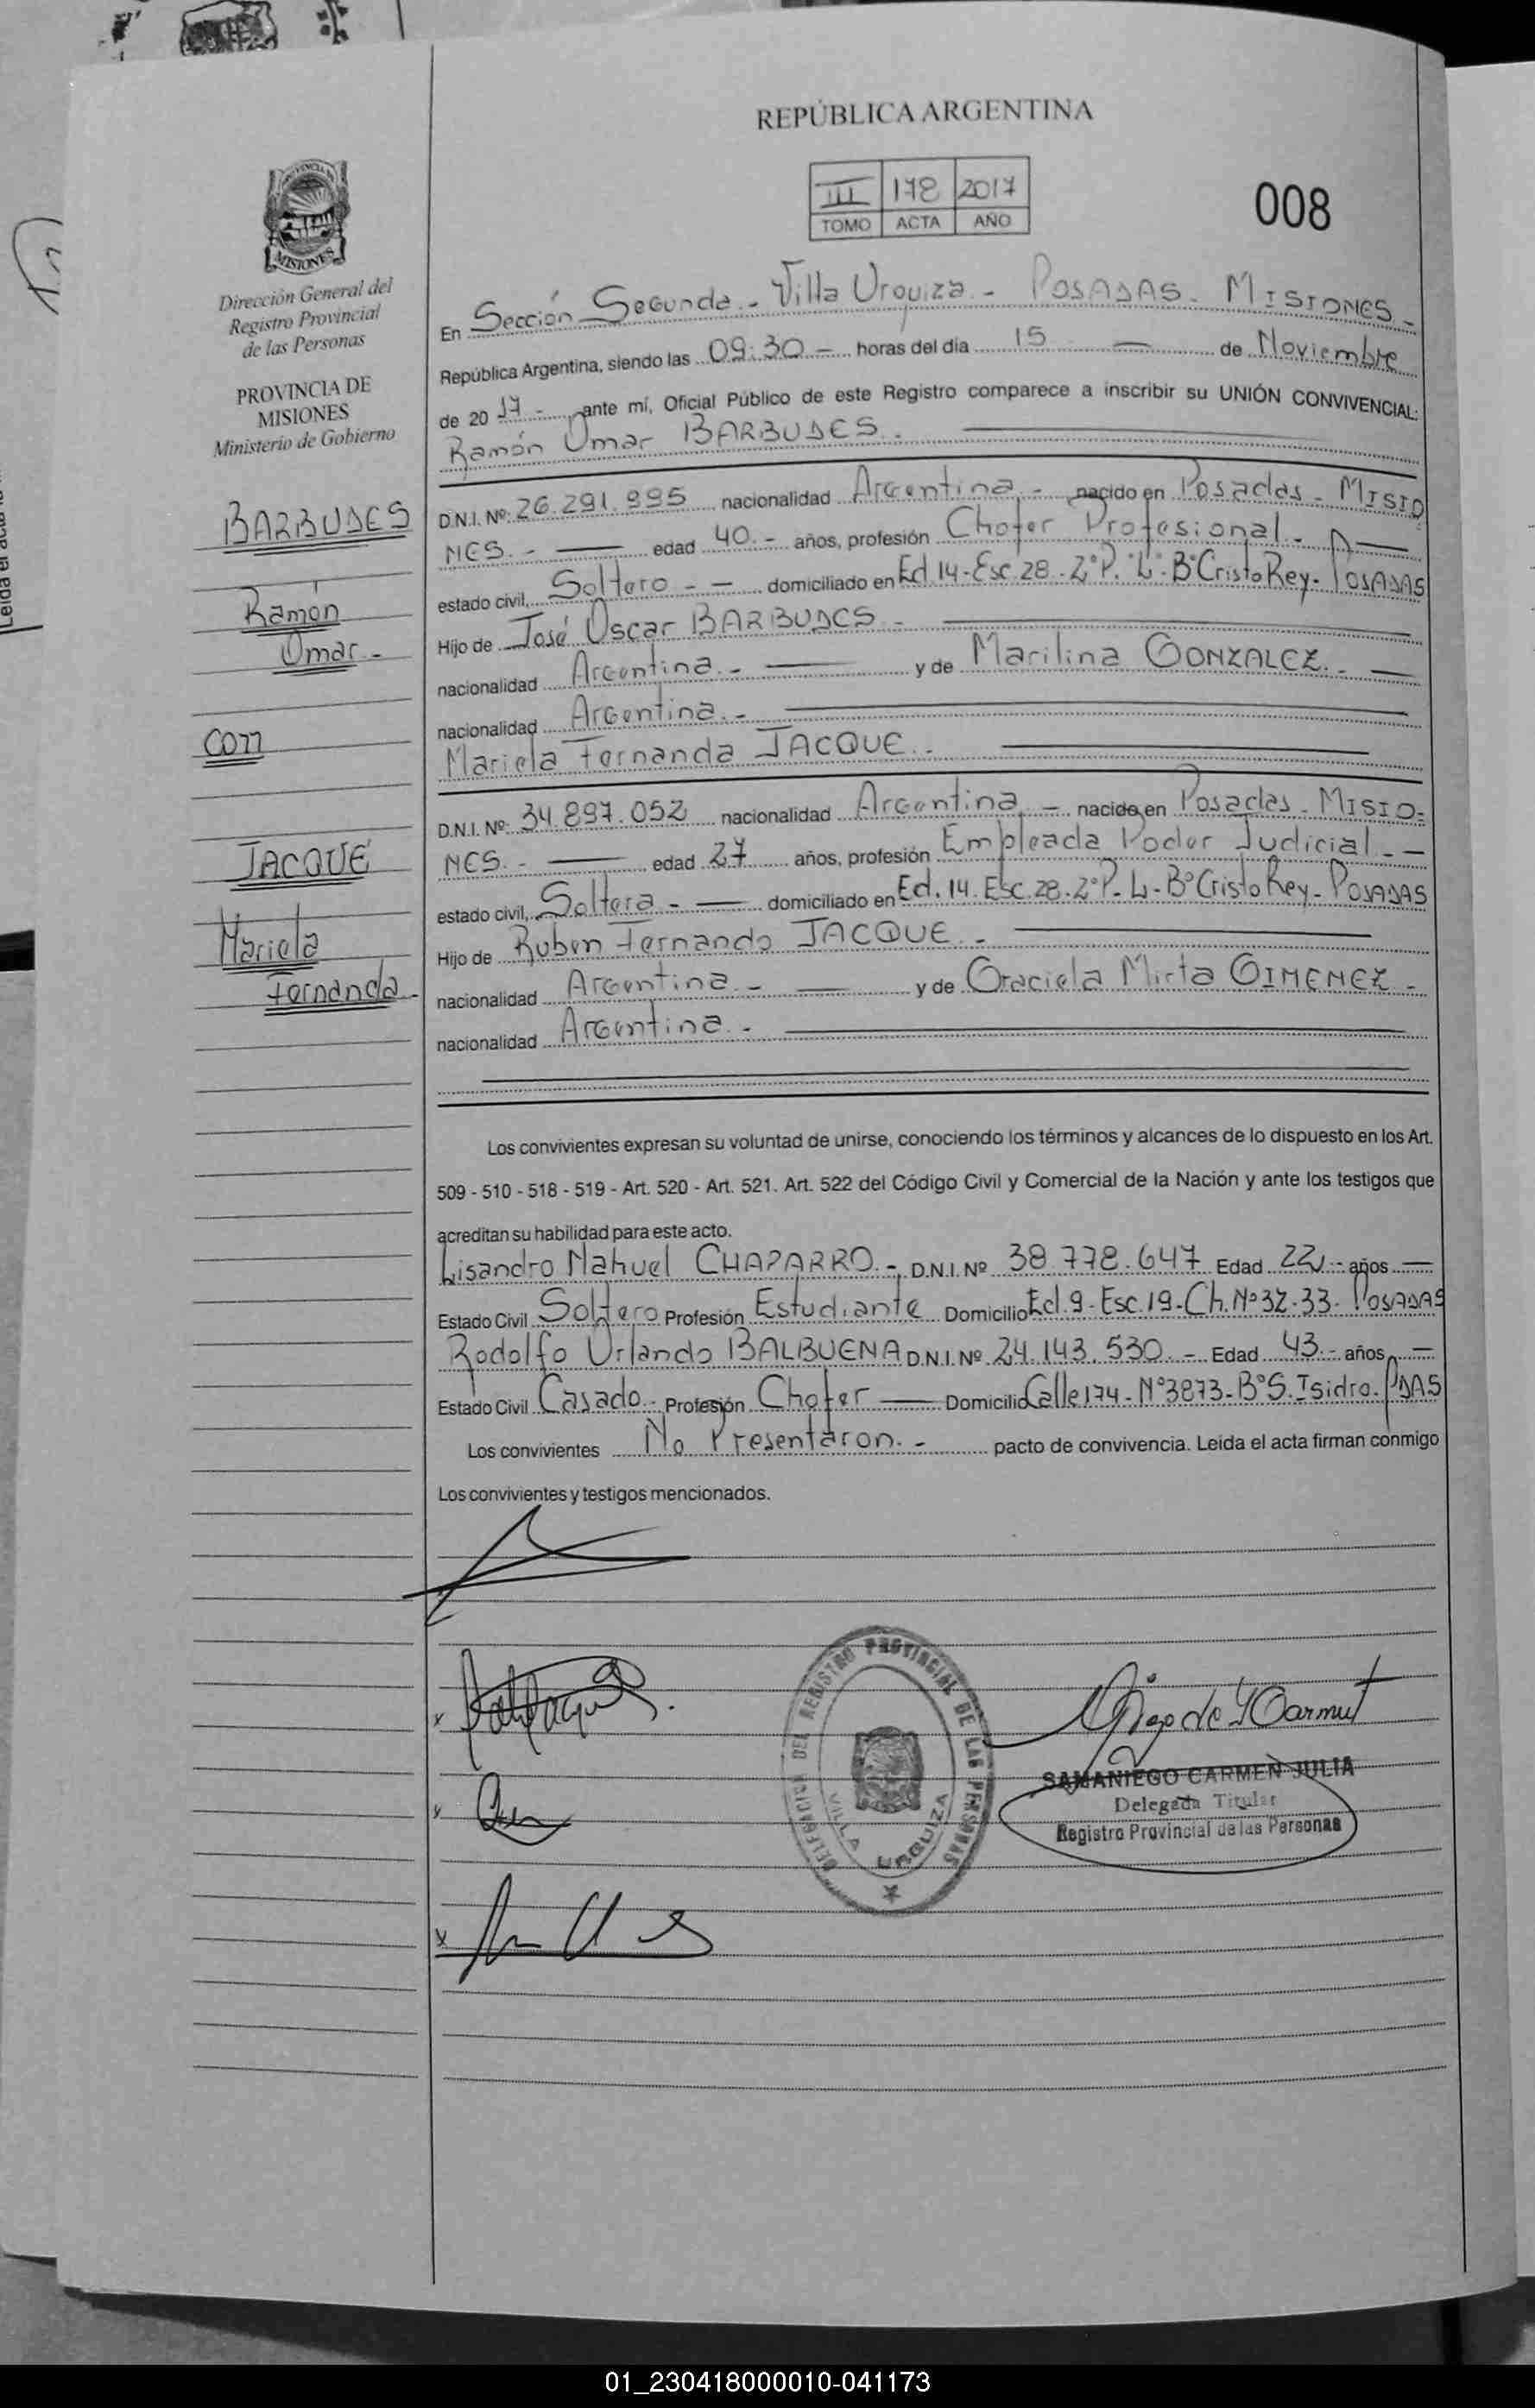 REPÚBLICA ARGENTINA
III 178 2017
TOMO ACTA AÑO
008
PROVINCIA DE
MISIONES
Dirección General del
Registro Provincial
de las Personas
PROVINCIA DE
MISIONES
Ministerio de Gobierno
BARBUDES
Ramón
Omar -
con
JACQUE
Mariela
Fernanda -
En Sección Segunda - Villa Urquiza - POSADAS - MISIONES -
República Argentina, siendo las 09:30 - horas del día 15 — de Noviembre
de 2017 - ante mí, Oficial Público de este Registro comparece a inscribir su UNIÓN CONVIVENCIAL:
Ramón Omar BARBUDES -
D.N.I. Nº: 26.291.995 nacionalidad Argentina - nacido en Posadas - MISIO
NES. - — edad 40 - años, profesión Chofer Profesional -
estado civil, Soltero - - domiciliado en Ed 14-Esc 28 - 2°P. "L" - B°Cristo Rey - POSADAS
Hijo de José Oscar BARBUDES -
nacionalidad Argentina - — y de Marilina GONZALEZ. -
nacionalidad Argentina. -
Mariela Fernanda JACQUE. -
D.N.I. Nº: 34.897.052 nacionalidad Argentina - nacido en Posadas - MISIO-
NES. - — edad 27 años, profesión Empleada Poder Judicial - -
estado civil, Soltera - — domiciliado en Ed. 14. Esc. 28 - 2°P - L - B°Cristo Rey - POSADAS
Hijo de Ruben Fernando JACQUE. -
nacionalidad Argentina - — y de Graciela Mirta GIMENEZ -
nacionalidad Argentina. -
Los convivientes expresan su voluntad de unirse, conociendo los términos y alcances de lo dispuesto en los Art.
509 - 510 - 518 - 519 - Art. 520 - Art. 521. Art. 522 del Código Civil y Comercial de la Nación y ante los testigos que
acreditan su habilidad para este acto.
Lisandro Nahuel CHAPARRO. - D.N.I. Nº 38.778.647 Edad 22 - años —
Estado Civil Soltero Profesión Estudiante Domicilio Ed. 9 - Esc. 19 - Ch. N° 32-33 - POSADAS
Rodolfo Orlando BALBUENA D.N.I. Nº 24.143.530. - Edad 43 - años —
Estado Civil Casado - Profesión Chofer — Domicilio Calle 174 - N°3873 - B°S. Isidro - PDAS
Los convivientes No Presentaron. - pacto de convivencia. Leída el acta firman conmigo
Los convivientes y testigos mencionados.
DELEGACION DEL REGISTRO PROVINCIAL DE LAS PERSONAS
VILLA URQUIZA
SAMANIEGO CARMEN JULIA
Delegada Titular
Registro Provincial de las Personas
01_230418000010-041173